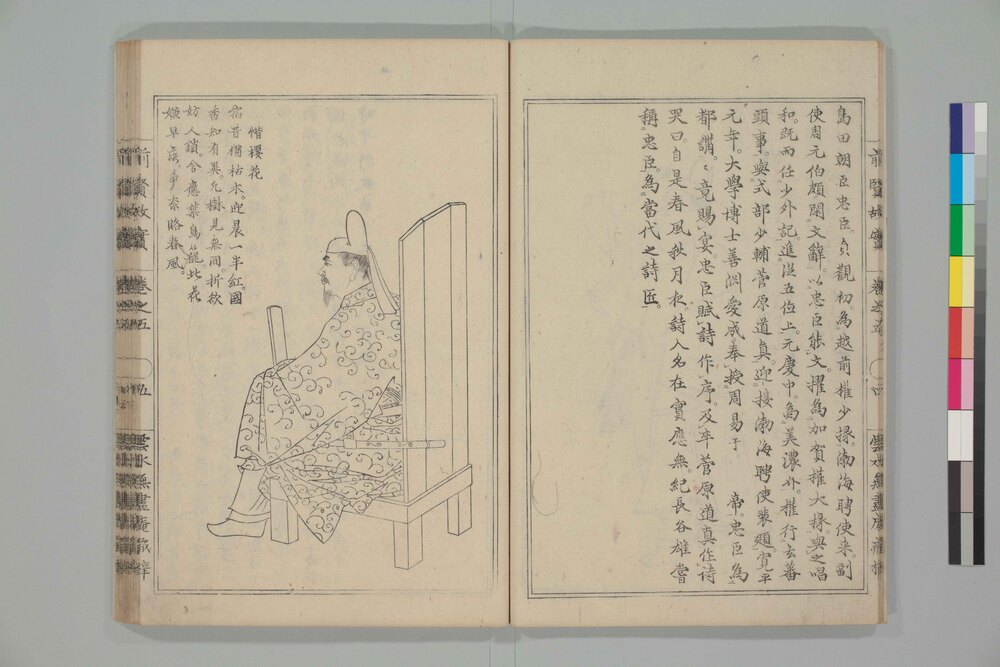 島田朝臣忠臣。貞觀初。為越前権少掾。渤海聘使来。副
使周元伯頗閑文辭。以忠臣能文。擢為加賀権大掾。與之唱
和。既而任少外記。進従五位上。元慶中。為美濃介。権行玄蕃
頭事。與式部少輔菅原道真。迎接渤海聘使裴頲。寛平
元年大學博士善淵愛成。奉授周易于 帝。忠臣為
都講。竟賜宴。忠臣賦詩作序。及卒菅原道真作詩
哭曰。自是春風秋月夜。詩人名在實應無。紀長谷雄嘗
稱忠臣。為當代之詩匠。
惜櫻花
宿昔猶枯木。迎晨一半紅。國
香知有異。凡樹見無同。折欲
妨人鎖。含應禁鳥籠。此花
嫌早落。爭奈賂春風。
前賢故實
巻之五
五